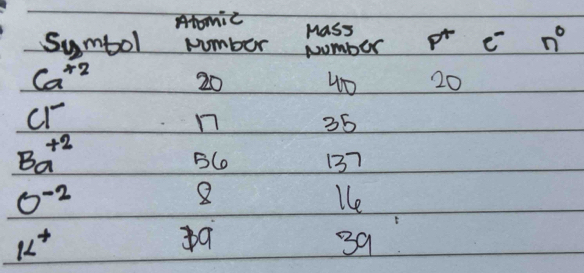 Symbol Atomic Number Mass Number P+ e- n°
Ca+2 20 40 20
Cl- 17 35
Ba+2 56 137
O-2 8 16
K+ 39